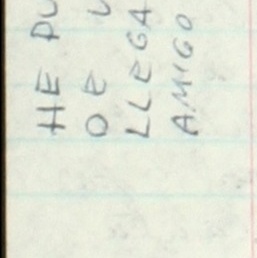 HE PU
DE U
LLEGA
AMIGO